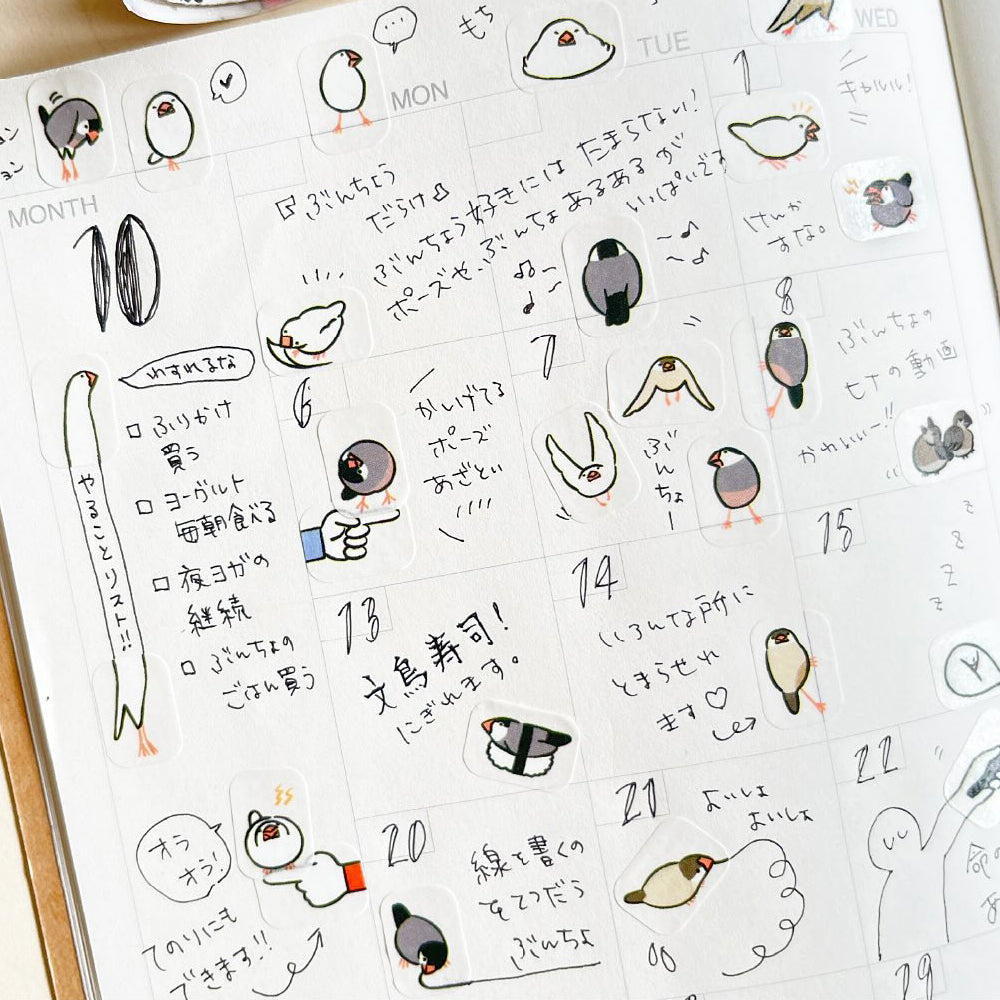 もち
MON
TUE
WED
MONTH
10
ぶんちょう
だらけ
ぶんちょう好きには たまらない!
ポーズや、ぶんちょあるあるが
いっぱいです
1
キャルルル!
けんか
すな。
わすれるな
やることリスト!!
□ ふりかけ
買う
□ ヨーグルト
毎朝食べる
□ 夜ヨガの
継続
□ ぶんちょの
ごはん買う
6
かしげてる
ポーズ
あざとい
7
ぶんちょー
8
ぶんちょの
七十の動画
かわいいー!!
13
文鳥寿司!
にぎれます。
14
いろんな所に
とまらせれ
ます♡
15
z
z
z
z
オラ
オラ!
てのりにも
できます!!
20
線を書くの
をてつだう
ぶんちょ
21
よいしょ
よいしょ
22
命の